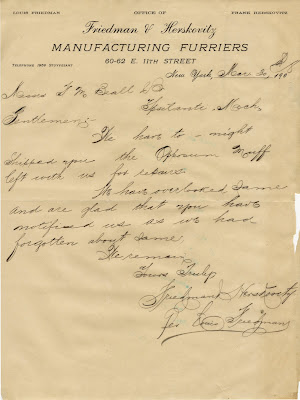 LOUIS FRIEDMAN OFFICE OF FRANK HERSKOVITZ
Friedman & Herskovitz
MANUFACTURING FURRIERS
60-62 E. 11TH STREET
TELEPHONE 1979 STUYVESANT
New York, Mar 190
Messrs T M Beall & Co
Ypsilante, Mich
Gentlemen:-
We have to-night
shipped you the Opossum Muff
left with us for repairs.
We have overlooked same
and are glad that you have
notefied us as we had
forgotten about same.
We remain
Yours Truly
Friedman & Herskovitz
Per Louis Friedman